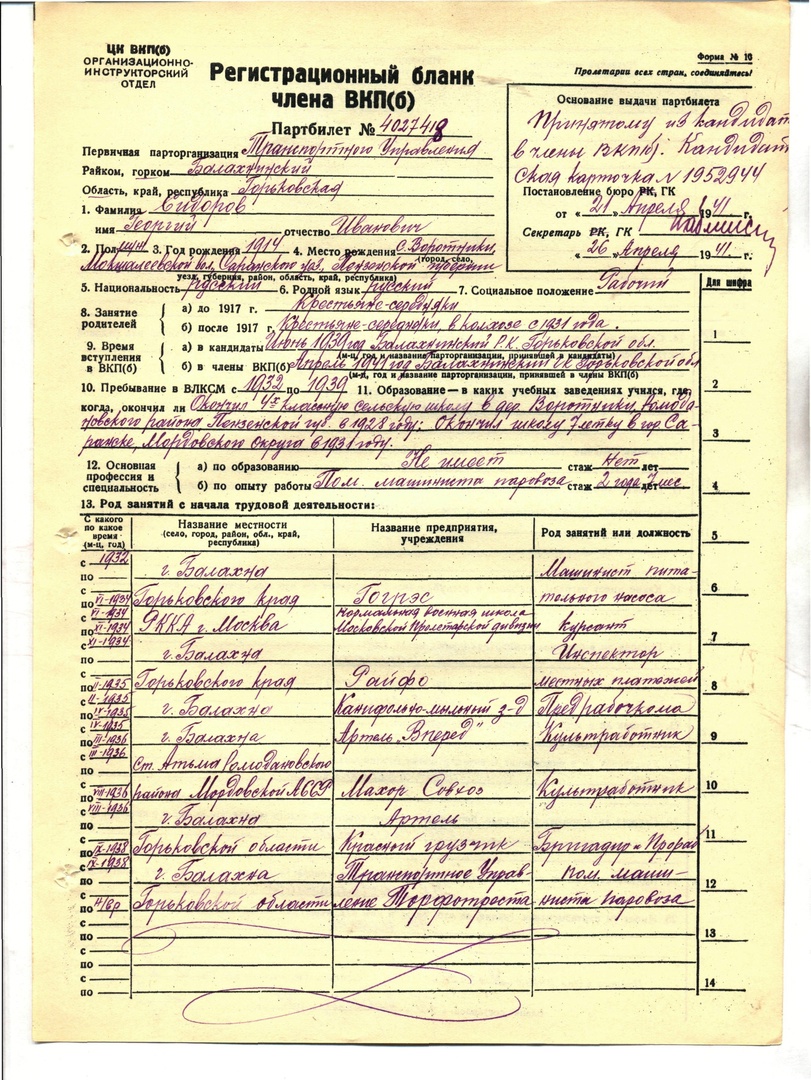 ЦК ВКП(б)
ОРГАНИЗАЦИОННО-
ИНСТРУКТОРСКИЙ
ОТДЕЛ
Форма № 10
Пролетарии всех стран, соединяйтесь!
Регистрационный бланк
члена ВКП(б)
Партбилет № 4027418
Первичная парторганизация Транспортного Управления
Райком, горком Балахнинский
Область, край, республика Горьковская
1. Фамилия Сидоров
имя Георгий отчество Иванович
Основание выдачи партбилета
Принятому из кандидат
в члены ВКПб). Кандидат
ская карточка № 1952944
Постановление бюро РК, ГК
от « 21 » Апреля 1941 г.
Секретарь РК, ГК
« 26 » Апреля 1941 г.
2. Пол муж 3. Год рождения 1914 4. Место рождения с. Воротники,
(город, село,
Мокшалеевской вол. Саранского уез. Пензенской губернии
уезд, губерния, район, область, край, республика)
5. Национальность русский 6. Родной язык русский 7. Социальное положение Рабочий
Для шифра
8. Занятие родителей
а) до 1917 г. Крестьяне-середняки
б) после 1917 г. Крестьяне-середняки, в колхозе с 1931 года.
9. Время вступления в ВКП(б)
а) в кандидаты Июнь 1939 год Балахнинский Р.К. Горьковской обл.
(м-ц, год и название парторганизации, принявшей в кандидаты)
б) в члены ВКП(б) Апрель 1941 год Балахнинский РК Горьковской обл
(м-ц, год и название парторганизации, принявшей в члены ВКП(б)
10. Пребывание в ВЛКСМ с 1932 по 1939 11. Образование – в каких учебных заведениях учился, где,
когда, окончил ли Окончил 4х классную сельскую школу в дер. Воротники, Ромода-
новского района Пензенской губ. в 1928 году; Окончил школу 7летку в гор. Са-
ранске, Мордовского Округа в 1931 году.
12. Основная профессия и специальность
а) по образованию Не имеет стаж Нет лет
б) по опыту работы Пом. машиниста паровоза стаж 2 года 7 мес. лет
13. Род занятий с начала трудовой деятельности:
С какого по какое время (м-ц, год)
Название местности (село, город, район, обл., край, республика)
Название предприятия, учреждения
Род занятий или должность
с 1932 г. Балахна Машинист пита-
по VI-1934 Горьковского край Гогрэс тельного насоса
с VI-1934 РККА г. Москва Нормальная военная школа
по XI-1934 Московской Пролетарской дивизии Курсант
с XI-1934 г. Балахна Инспектор
по II-1935 Горьковского край Райфо местных платежей
с II-1935 по IV-1935 г. Балахна Канифольно-мыльный з-д Предрабочкома
с IV-1935 по III-1936 г. Балахна Артель „Вперед" Культработник
с III-1936 Ст. Атьма Ромодановского
по VIII-1936 района Мордовской АССР Махор. Совхоз Культработник
с VIII-1936 г. Балахна Артель
по IX-1938 Горьковской области Красный грузчик Бригадир и Прораб
с IX-1938 г. Балахна Транспортное Управ- Пом. маши-
по н/вр Горьковской области ление Торфотреста ниста паровоза
с
по
с
по
1
2
3
4
5
6
7
8
9
10
11
12
13
14